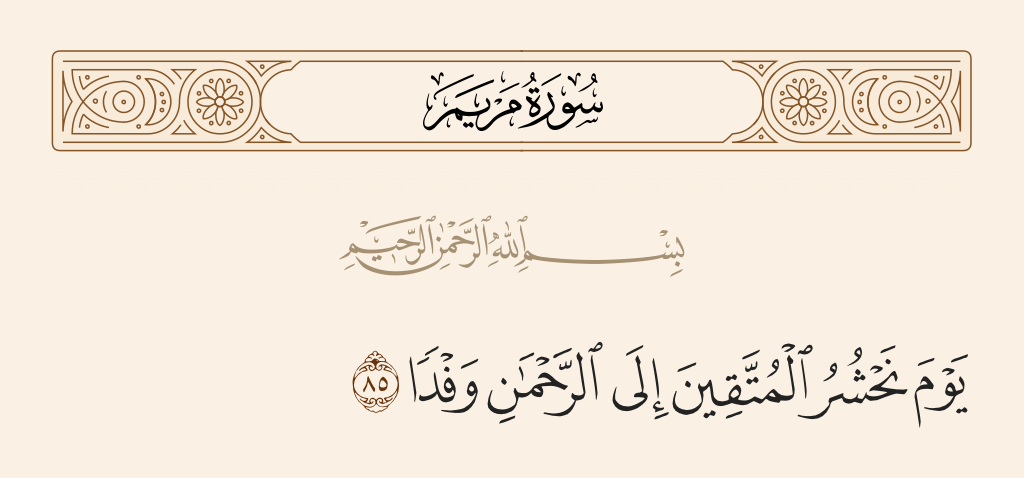 سُورَةُ مَرْيَمَ
بِسْمِ ٱللَّهِ ٱلرَّحْمَٰنِ ٱلرَّحِيمِ
يَوْمَ نَحْشُرُ ٱلْمُتَّقِينَ إِلَى ٱلرَّحْمَٰنِ وَفْدًا ٨٥